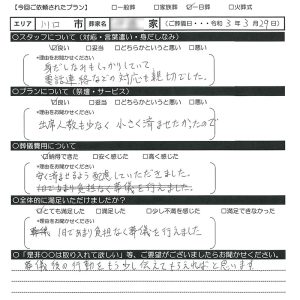 【今回ご依頼されたプラン】 □一般葬 □家族葬 ☑一日葬 □火葬式
エリア 川口 市 葬家名 家 （ご葬儀日・令和3年3月29日）
○スタッフについて（対応・言葉遣い・身だしなみ）
☑良い □妥当 □どちらかというと悪い □悪い
*理由をお聞かせください
身だしなみもしっかりしていて、
電話連絡などの対応も親切でした。
○プランについて（祭壇・サービス）
☑良い □妥当 □どちらかというと悪い □悪い
*理由をお聞かせください
出席人数も少なく 小さく済ませたかったので
○葬儀費用について
☑納得できた □安く感じた □高く感じた
*理由をお聞かせください
安く済ませるよう配慮していただきました。
1日であまり負担なく葬儀を行えました。
○全体的に満足いただけましたか？
☑とても満足した □満足した □少し不満を感じた □満足できなかった
*理由をお聞かせください
葬儀 1日であまり負担なく葬儀を行えました。
○「是非○○は取り入れて欲しい」等、ご要望がございましたらお聞かせください。
葬儀後の行動をもう少し伝えてもらえればと思います